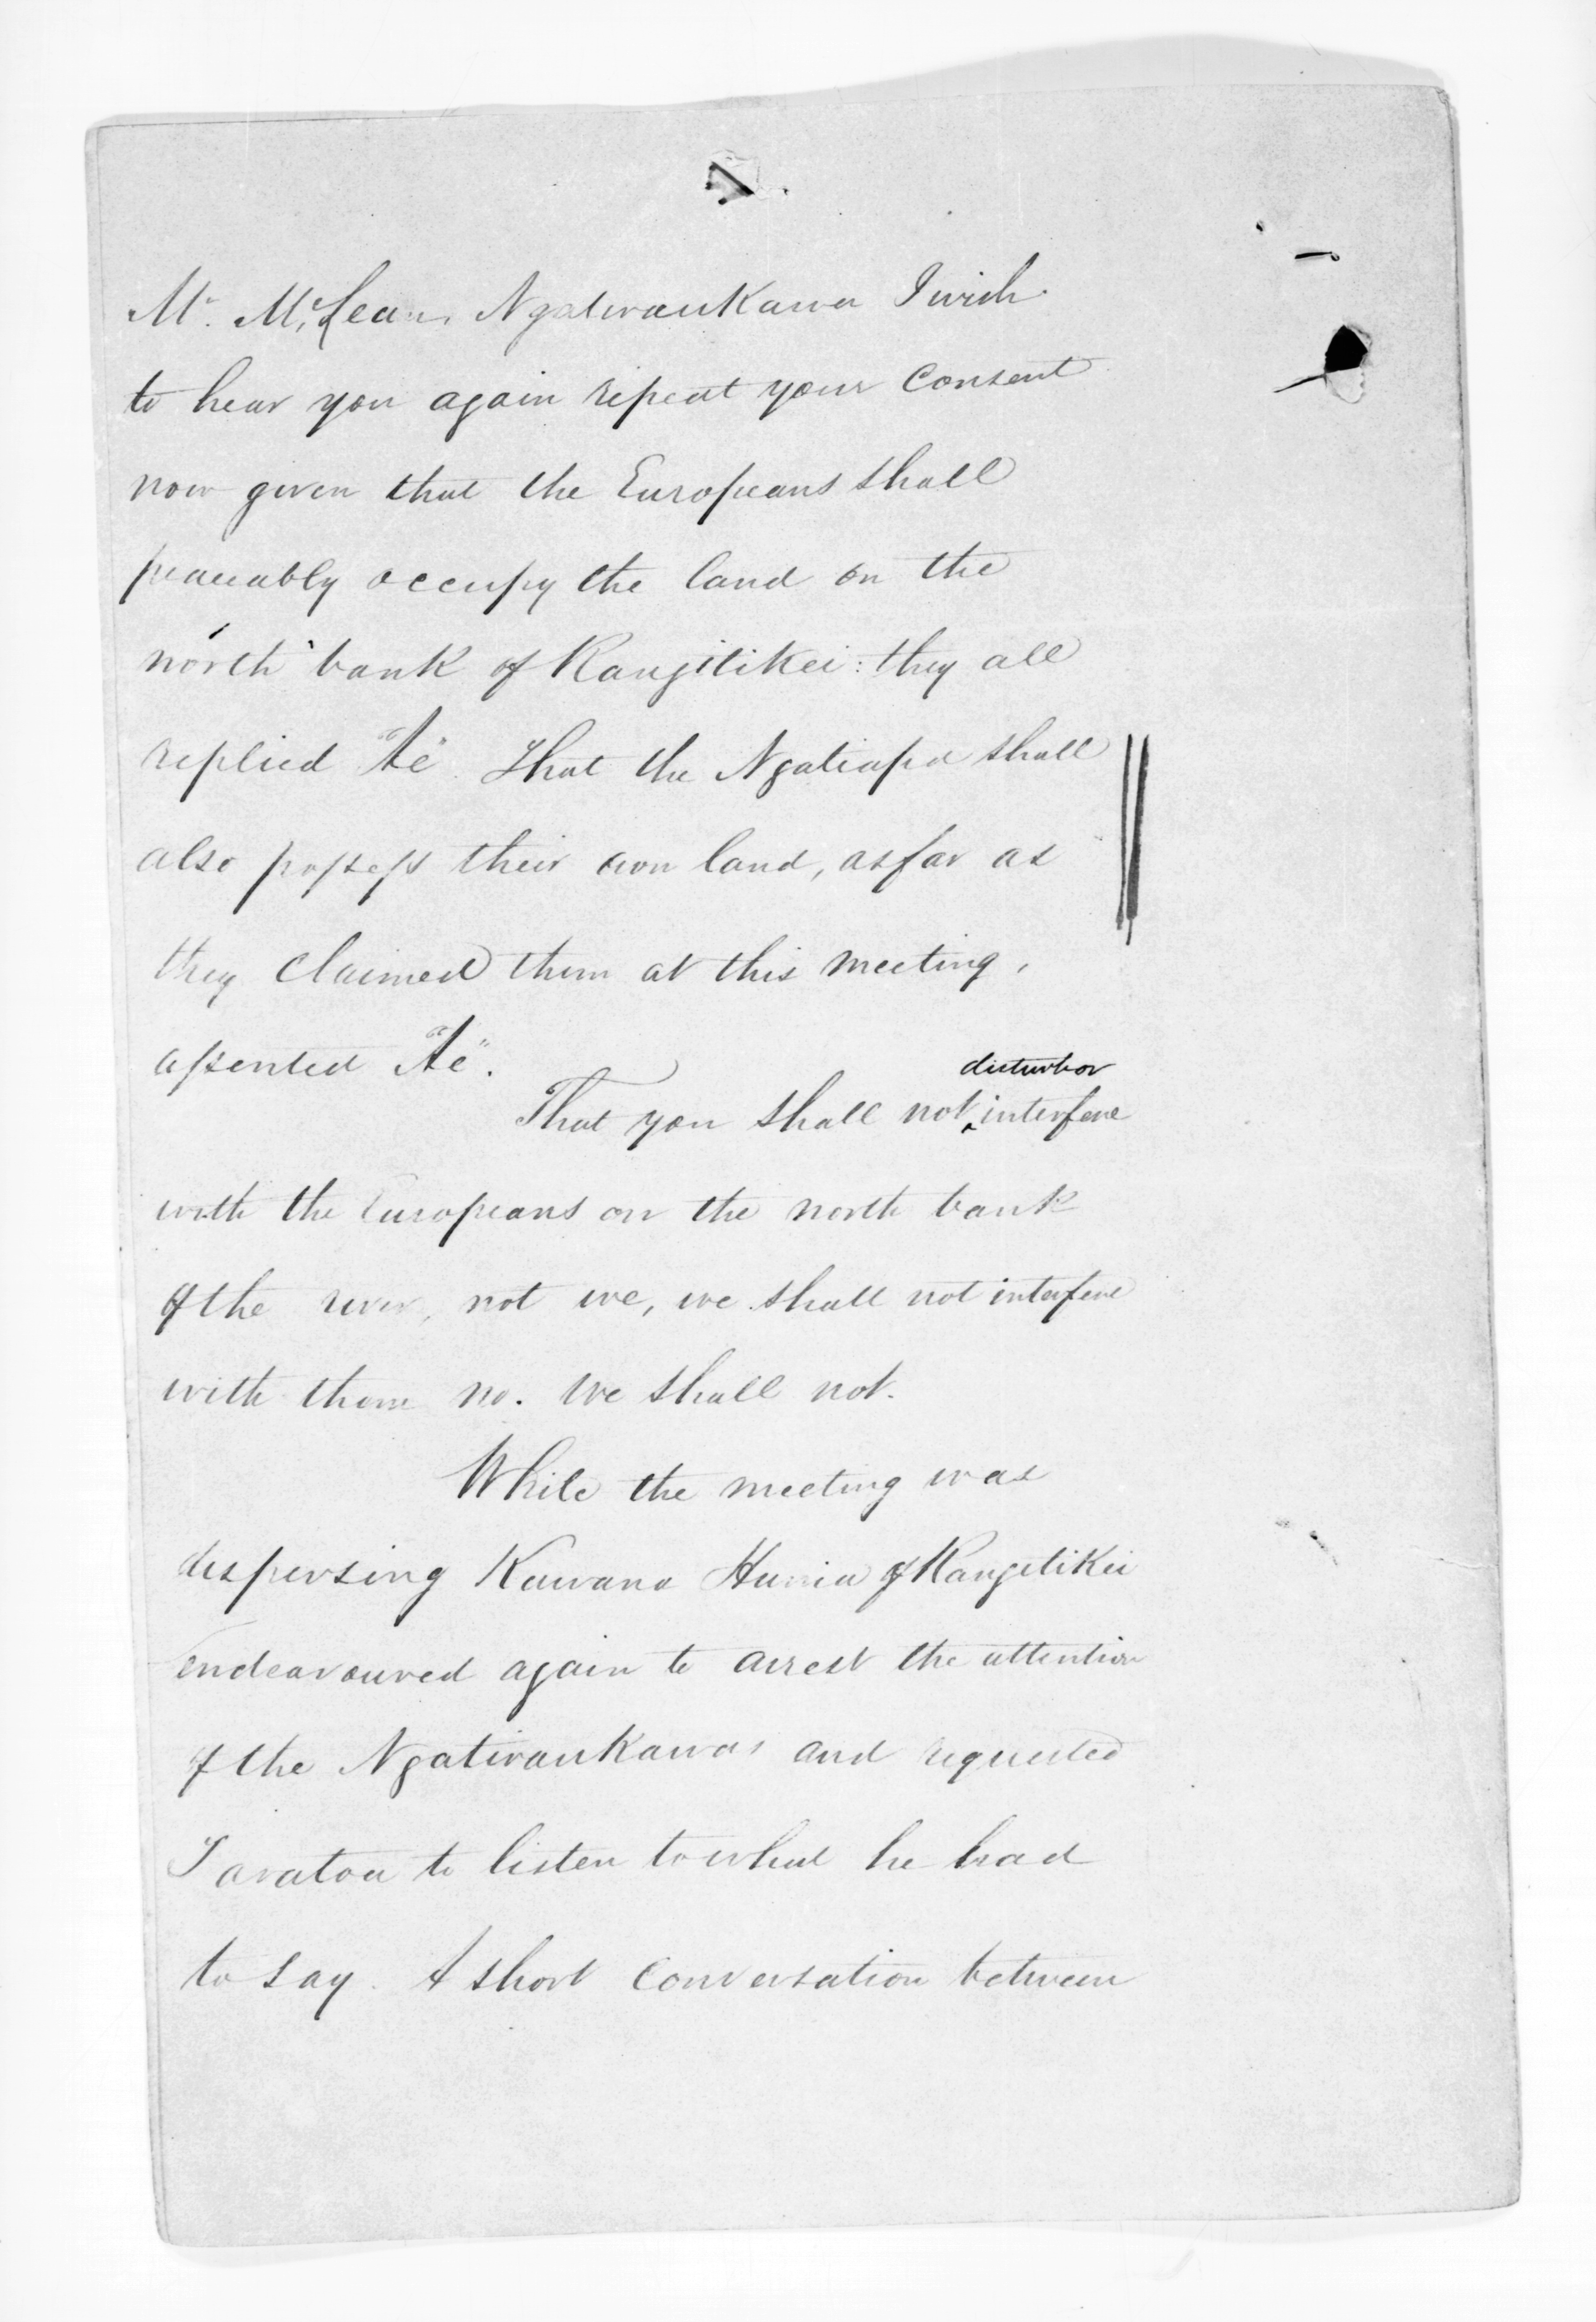 7.
Mr. McLean, Ngatiraukawa I wish
to hear you again repeat your consent
now given that the Europeans shall
peaceably occupy the land on the
north bank of Rangitikei: they all
replied "Ae". That the Ngatiapa shall
also possess their own land, as far as
they claimed them at this meeting,
assented "Ae".
disturb or
That you shall not interfere
with the Europeans on the north bank
of the river, not we, we shall not interfere
with them no. We shall not.
While the meeting was
dispersing Kawana Hunia of Rangitikei
endeavoured again to arrest the attention
of the Ngatiraukawas and requested
Taratoa to listen to what he had
to say. A short conversation between